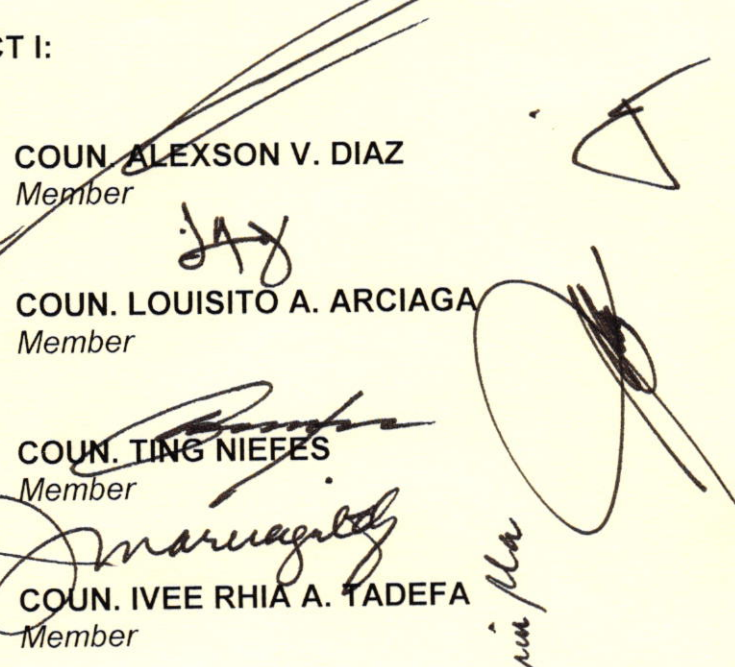 CT I:
COUN. ALEXSON V. DIAZ
Member
COUN. LOUISITO A. ARCIAGA
Member
COUN. TING NIEFES
Member
COUN. IVEE RHIA A. TADEFA
Member